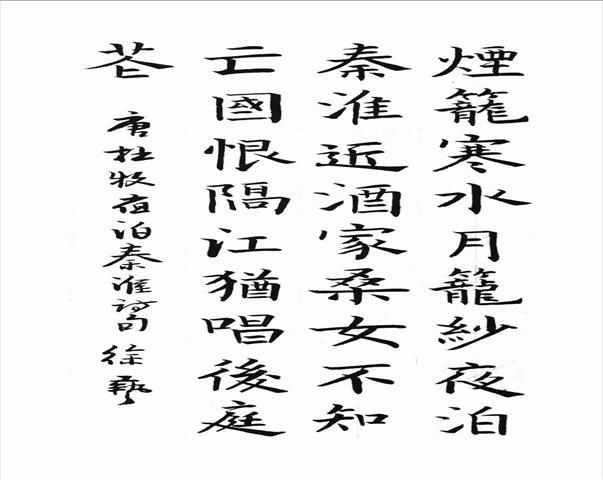 煙籠寒水月籠紗夜泊
秦淮近酒家桑女不知
亡國恨隔江猶唱後庭
花
唐杜牧夜泊秦淮詩句 徐